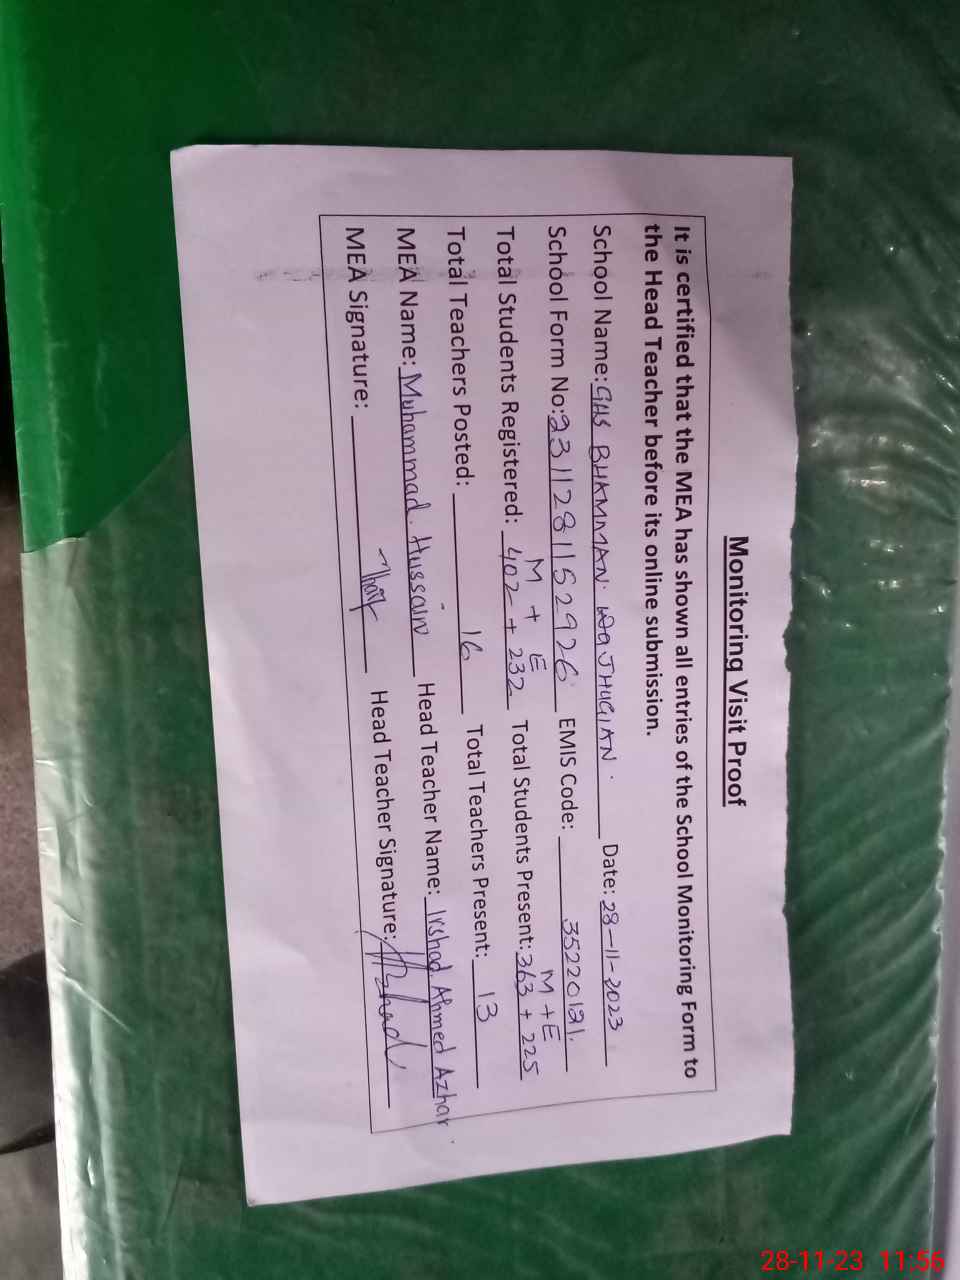 Monitoring Visit Proof
It is certified that the MEA has shown all entries of the School Monitoring Form to
the Head Teacher before its online submission.
School Name: GHS BHAMMAN JHUGIAN. Date: 28-11-2023
School Form No: 231128152926 EMIS Code: 35220121.
M + E M + E
Total Students Registered: 402 + 232 Total Students Present: 363 + 225
Total Teachers Posted: 16 Total Teachers Present: 13
MEA Name: Muhammad Hussain Head Teacher Name: Irshad Ahmed Azhar.
MEA Signature: Head Teacher Signature: Irshad
28-11-23 11:56